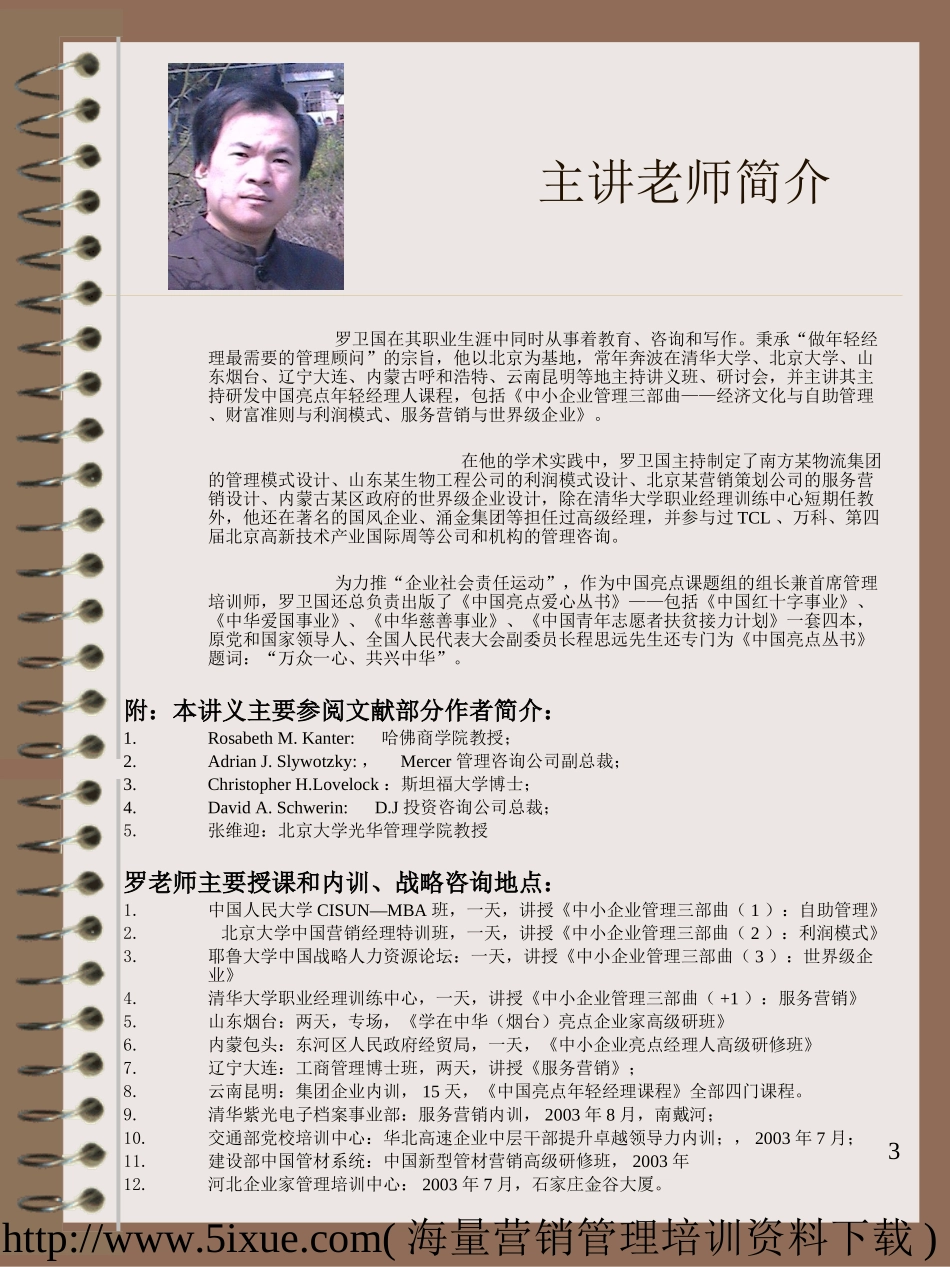 主讲老师简介
罗卫国在其职业生涯中同时从事着教育、咨询和写作。秉承“做年轻经
理最需要的管理顾问”的宗旨，他以北京为基地，常年奔波在清华大学、北京大学、山
东烟台、辽宁大连、内蒙古呼和浩特、云南昆明等地主持讲义班、研讨会，并主讲其主
持研发中国亮点年轻经理人课程，包括《中小企业管理三部曲——经济文化与自助管理
、财富准则与利润模式、服务营销与世界级企业》。
在他的学术实践中，罗卫国主持制定了南方某物流集团
的管理模式设计、山东某生物工程公司的利润模式设计、北京某营销策划公司的服务营
销设计、内蒙古某区政府的世界级企业设计，除在清华大学职业经理训练中心短期任教
外，他还在著名的国风企业、涌金集团等担任过高级经理，并参与过 TCL 、万科、第四
届北京高新技术产业国际周等公司和机构的管理咨询。
为力推“企业社会责任运动”，作为中国亮点课题组的组长兼首席管理
培训师，罗卫国还总负责出版了《中国亮点爱心丛书》——包括《中国红十字事业》、
《中华爱国事业》、《中华慈善事业》、《中国青年志愿者扶贫接力计划》一套四本，
原党和国家领导人、全国人民代表大会副委员长程思远先生还专门为《中国亮点丛书》
题词：“万众一心、共兴中华”。
附：本讲义主要参阅文献部分作者简介：
1. Rosabeth M. Kanter: 哈佛商学院教授；
2. Adrian J. Slywotzky: ， Mercer 管理咨询公司副总裁；
3. Christopher H.Lovelock ：斯坦福大学博士；
4. David A. Schwerin: D.J 投资咨询公司总裁；
5. 张维迎：北京大学光华管理学院教授
罗老师主要授课和内训、战略咨询地点：
1. 中国人民大学 CISUN—MBA 班，一天，讲授《中小企业管理三部曲（ 1 ）：自助管理》
2. 北京大学中国营销经理特训班，一天，讲授《中小企业管理三部曲（ 2 ）：利润模式》
3. 耶鲁大学中国战略人力资源论坛：一天，讲授《中小企业管理三部曲（ 3 ）：世界级企
业》
4. 清华大学职业经理训练中心，一天，讲授《中小企业管理三部曲（ +1 ）：服务营销》
5. 山东烟台：两天，专场，《学在中华（烟台）亮点企业家高级研班》
6. 内蒙包头：东河区人民政府经贸局，一天，《中小企业亮点经理人高级研修班》
7. 辽宁大连：工商管理博士班，两天，讲授《服务营销》；
8. 云南昆明：集团企业内训， 15 天，《中国亮点年轻经理课程》全部四门课程。
9. 清华紫光电子档案事业部：服务营销内训， 2003 年 8 月，南戴河；
10. 交通部党校培训中心：华北高速企业中层干部提升卓越领导力内训；， 2003 年 7 月；
11. 建设部中国管材系统：中国新型管材营销高级研修班， 2003 年
12. 河北企业家管理培训中心： 2003 年 7 月，石家庄金谷大厦。
3
http://www.5ixue.com( 海量营销管理培训资料下载 )